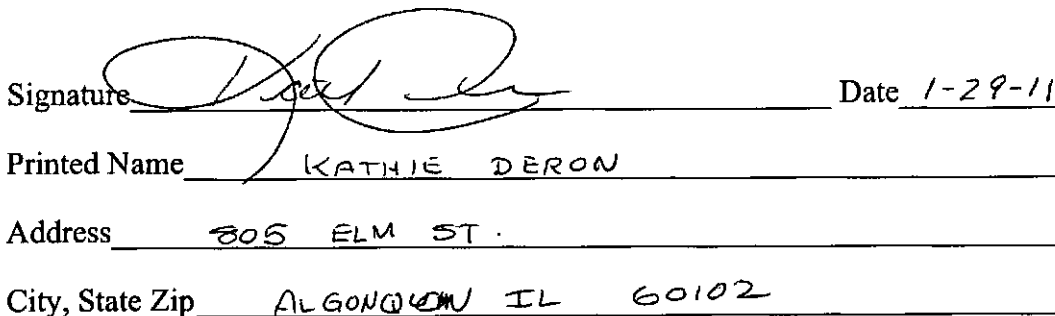 Signature Date 1-29-11
Printed Name KATHIE DERON
Address 805 ELM ST.
City, State Zip ALGONQUIN IL 60102